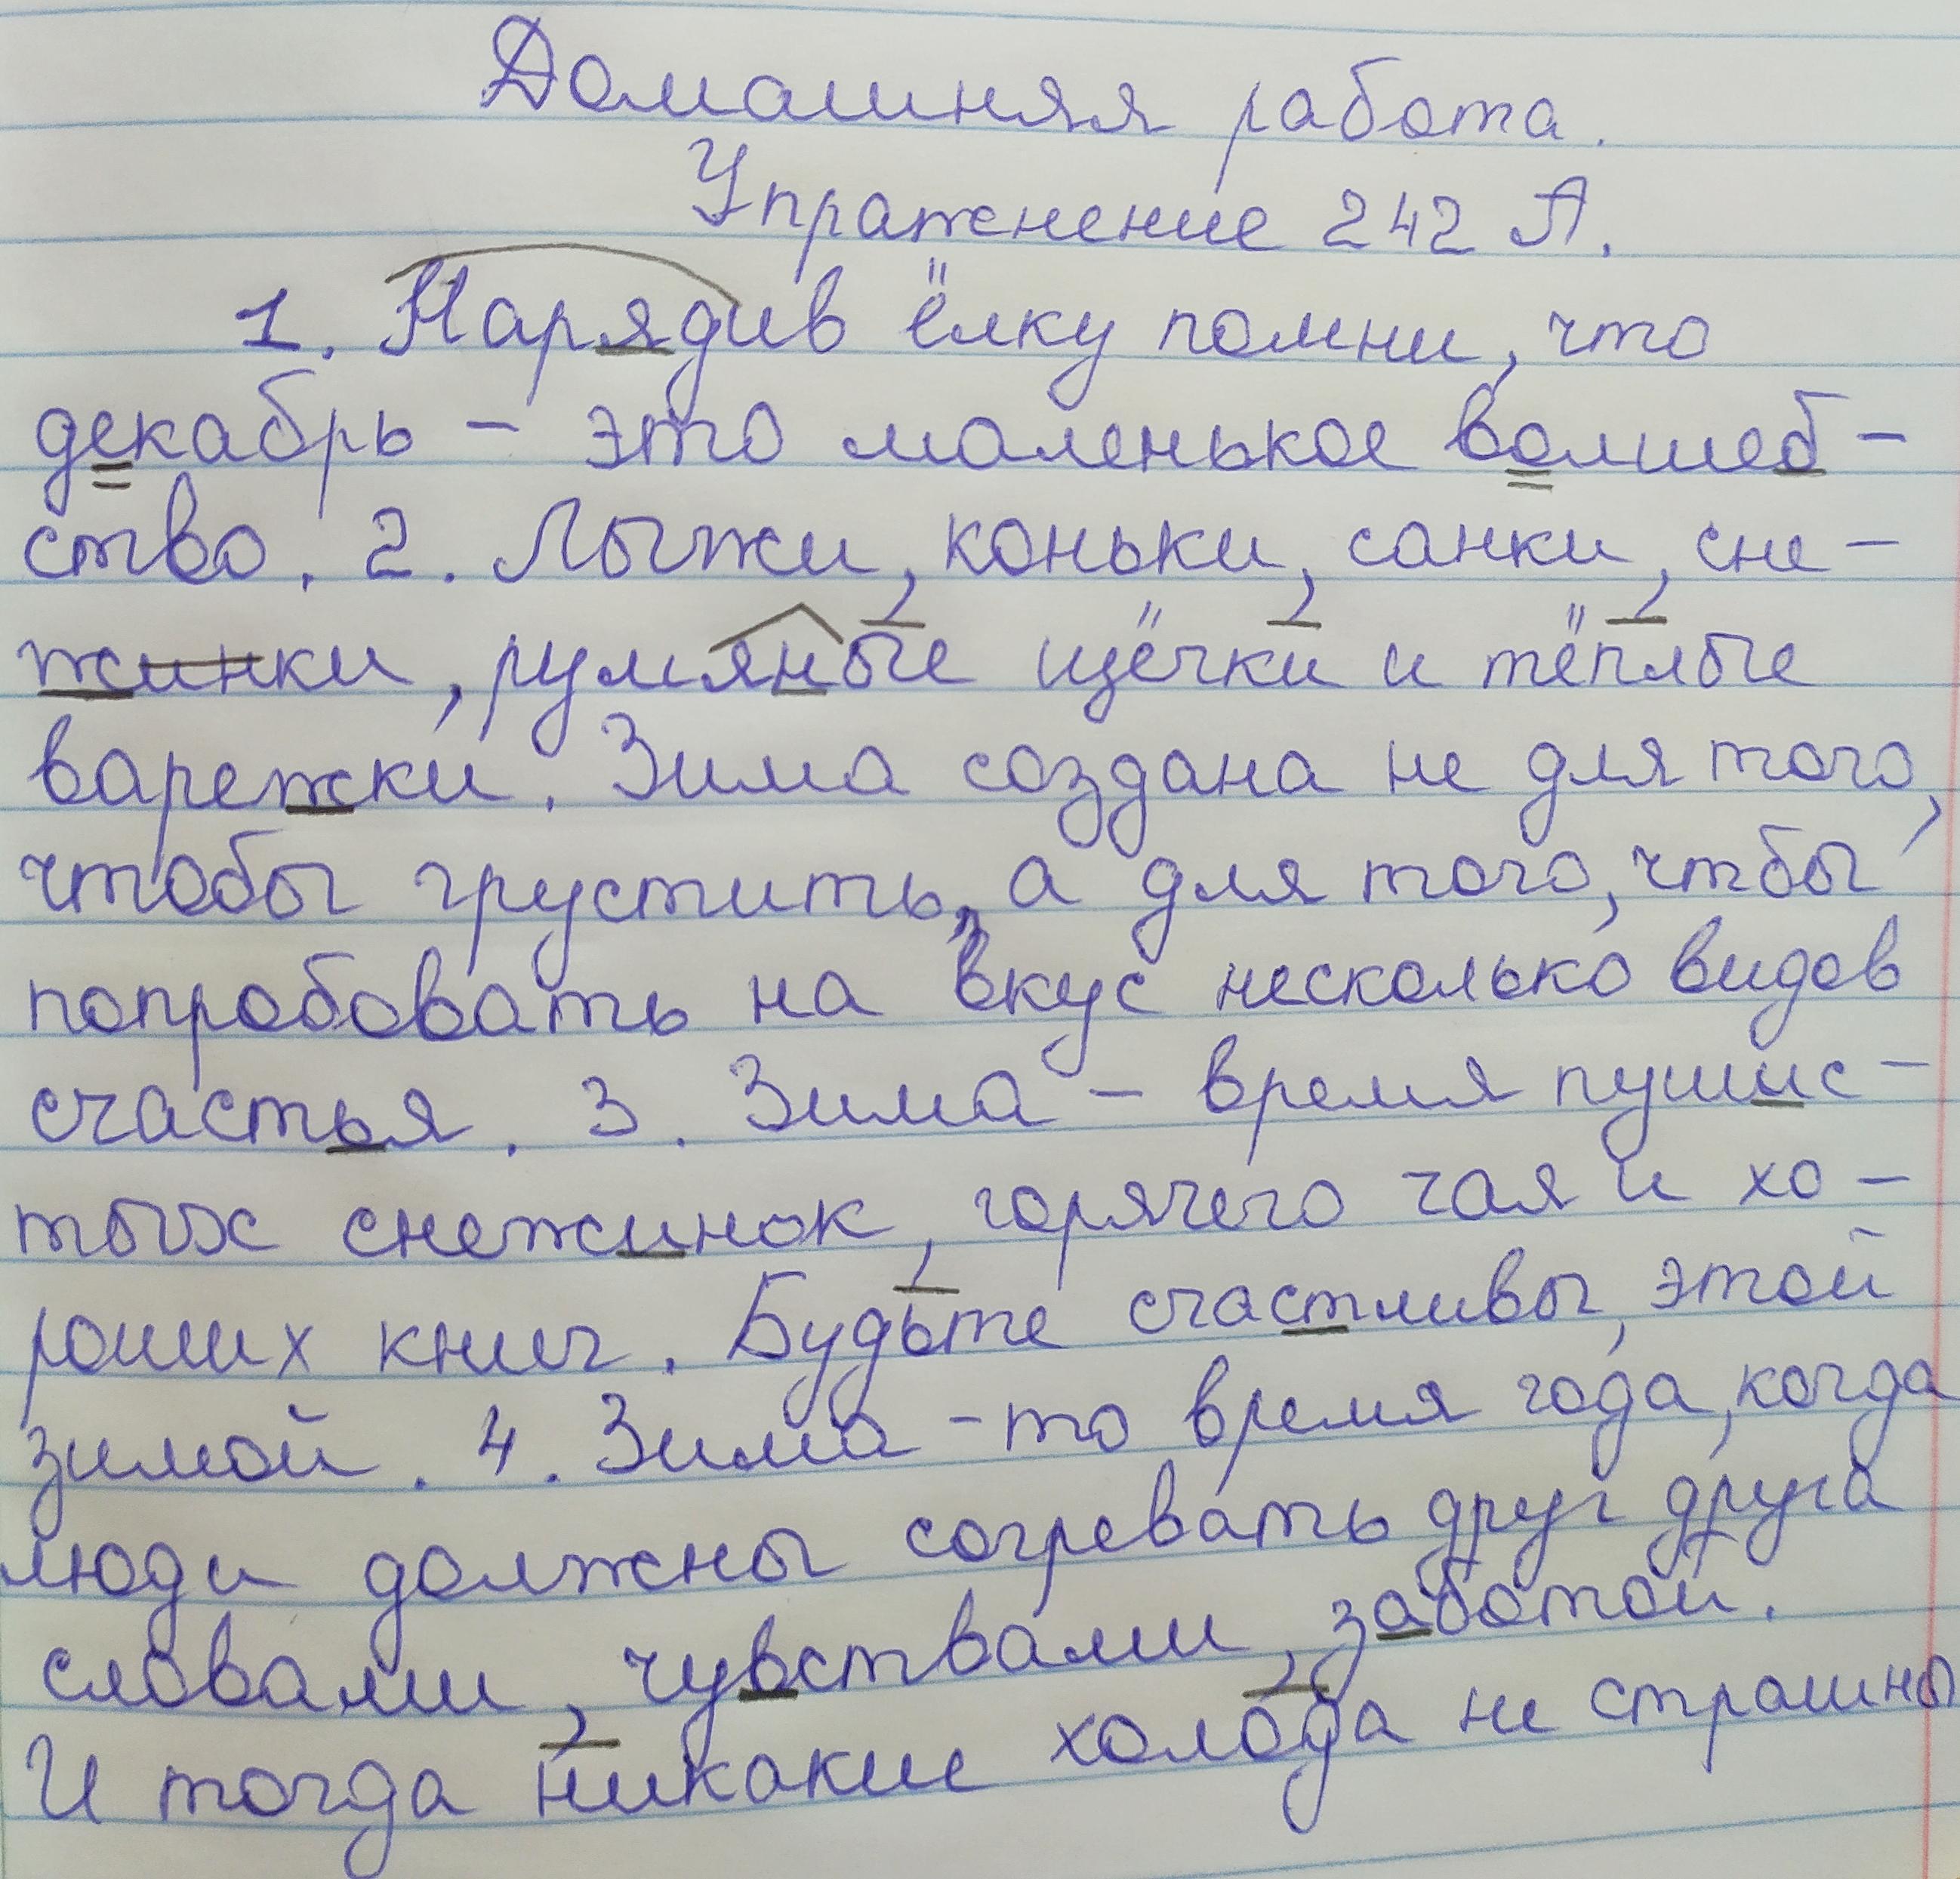 Домашняя работа.
Упражнение 242 А.
1. Нарядив ёлку помни, что
декабрь - это маленькое волшеб-
ство. 2. Лыжи, коньки, санки, сне-
жинки, румяные щёчки и тёплые
варежки. Зима создана не для того,
чтобы грустить, а для того, чтбы
попробовать на вкус несколько видов
счастья. 3. Зима - время пушис-
тых снежинок, горячего чая и хо-
роших книг. Будьте счастливы, этой
зимой. 4. Зима - то время года, когда
люди должны согревать друг друга
словами, чувствами, заботой.
И тогда никакие холода не страшны